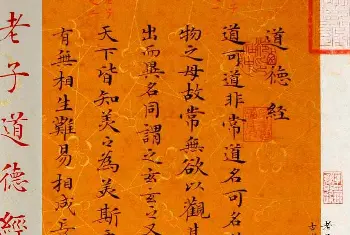 道德經
道可道非常道名可名
物之母故常無欲以觀其
出而異名同謂之玄玄之又
天下皆知美之為美斯
有無相生難易相成長
老子道德經